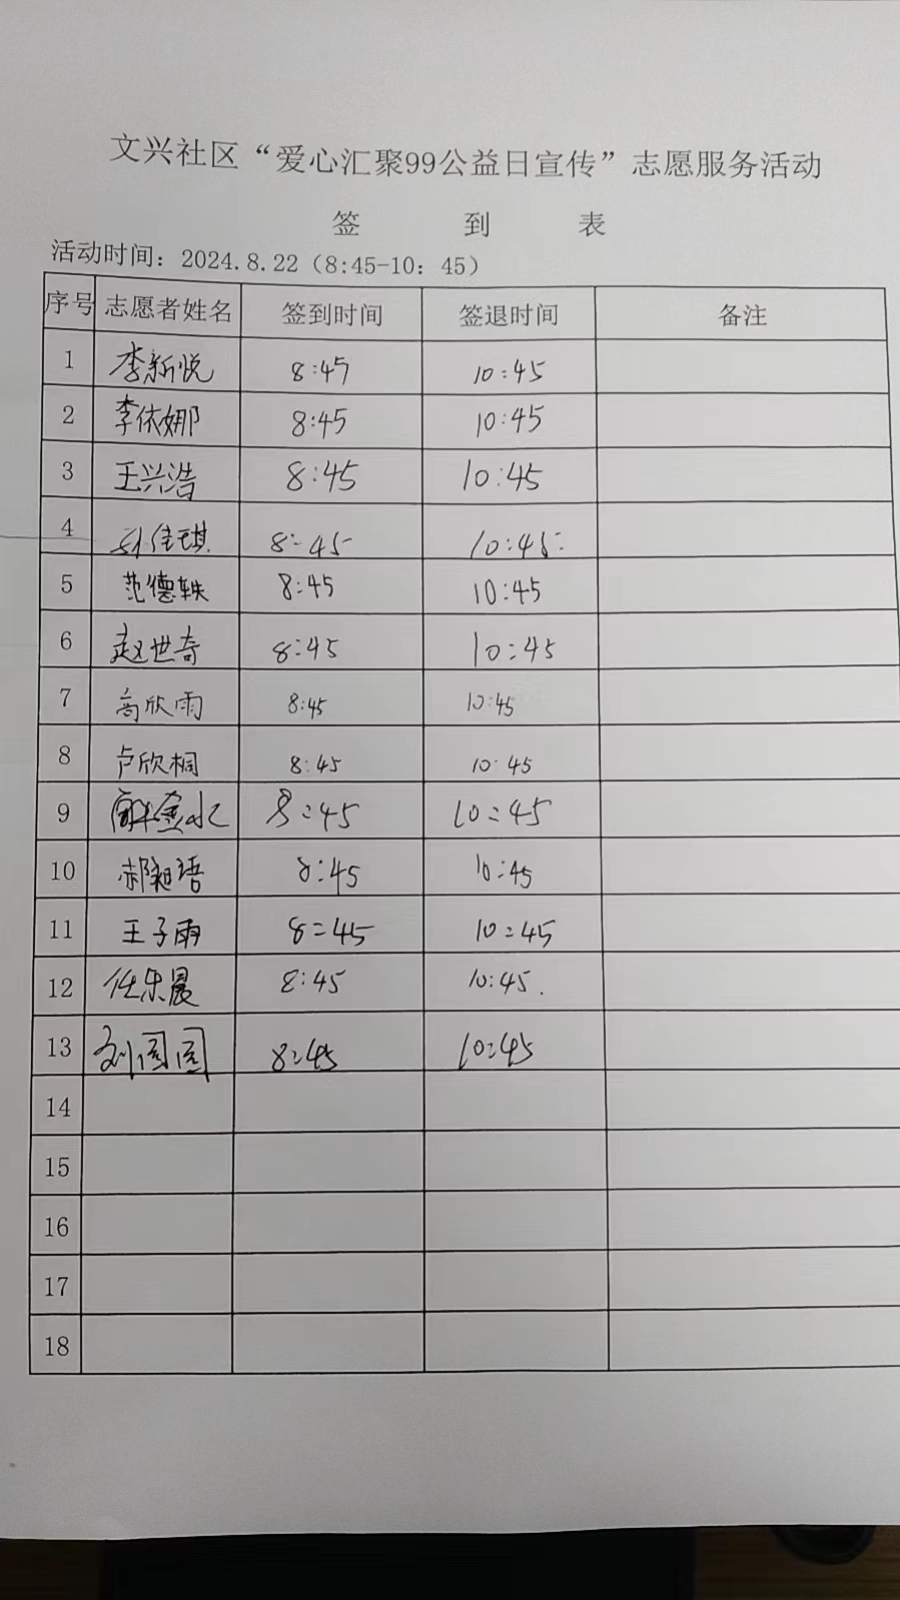 文兴社区“爱心汇聚99公益日宣传”志愿服务活动
签 到 表
活动时间：2024.8.22（8:45-10：45）
序号 志愿者姓名 签到时间 签退时间 备注
1 李新悦 8:45 10:45
2 李依娜 8:45 10:45
3 王兴浩 8:45 10:45
4 佳琪 8:45 10:45
5 范德轶 8:45 10:45
6 赵世奇 8:45 10:45
7 高欣雨 8:45 10:45
8 卢欣桐 8:45 10:45
9 8:45 10:45
10 郝 语 8:45 10:45
11 王子雨 8:45 10:45
12 任乐晨 8:45 10:45.
13 刘圆圆 8:45 10:45
14
15
16
17
18